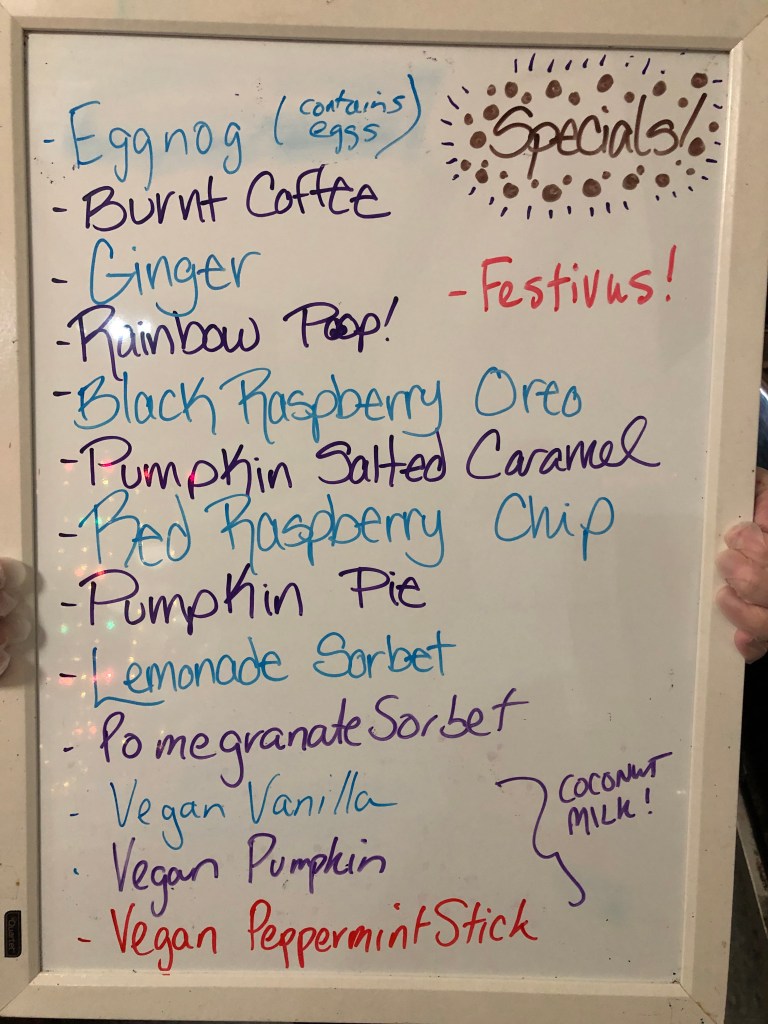 Specials!
- Eggnog (contains eggs)
- Burnt Coffee
- Ginger
- Festivus!
- Rainbow Poop!
- Black Raspberry Oreo
- Pumpkin Salted Caramel
- Red Raspberry Chip
- Pumpkin Pie
- Lemonade Sorbet
- Pomegranate Sorbet
- Vegan Vanilla
COCONUT
MILK!
· Vegan Pumpkin
- Vegan Peppermint Stick